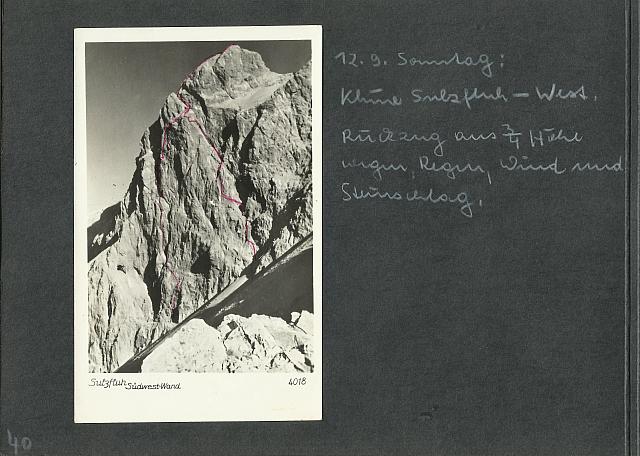 12.9. Sonntag:
Kleine Sulzfluh – West.
Rückzug aus ¾ Höhe
wegen Regen, Wind und
Steinschlag.
Sulzfluh Südwest-Wand
4018
40